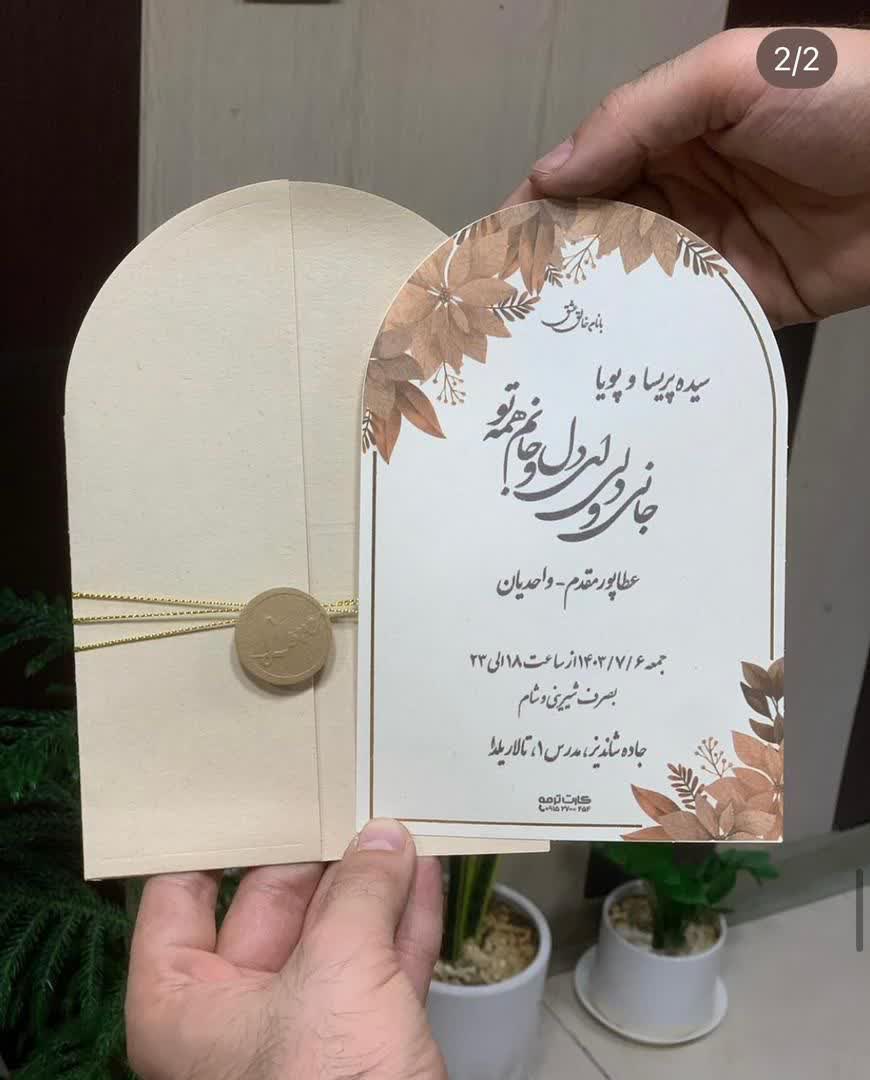 2/2
بنام خالق عشق
سیده پریسا و پویا
جانی و دلی ای دل و جانم همه تو
عطاپور مقدم - واحدیان
جمعه ۱۴۰۳/۷/۶ از ساعت ۱۸ الی ۲۳
بصرف شیرینی و شام
جاده شاندیز، مدرس ۱، تالار یلدا
کارت ترمه
۰۹۱۵ ۲۷۰۰ ۴۵۴